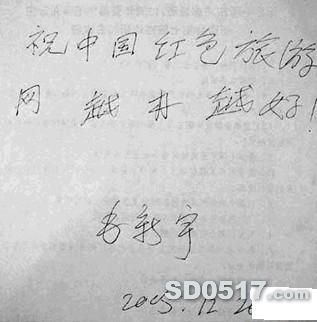 祝中国红色旅游
网 越 办 越 好!
毛新宇
SD0517.com
2005.12